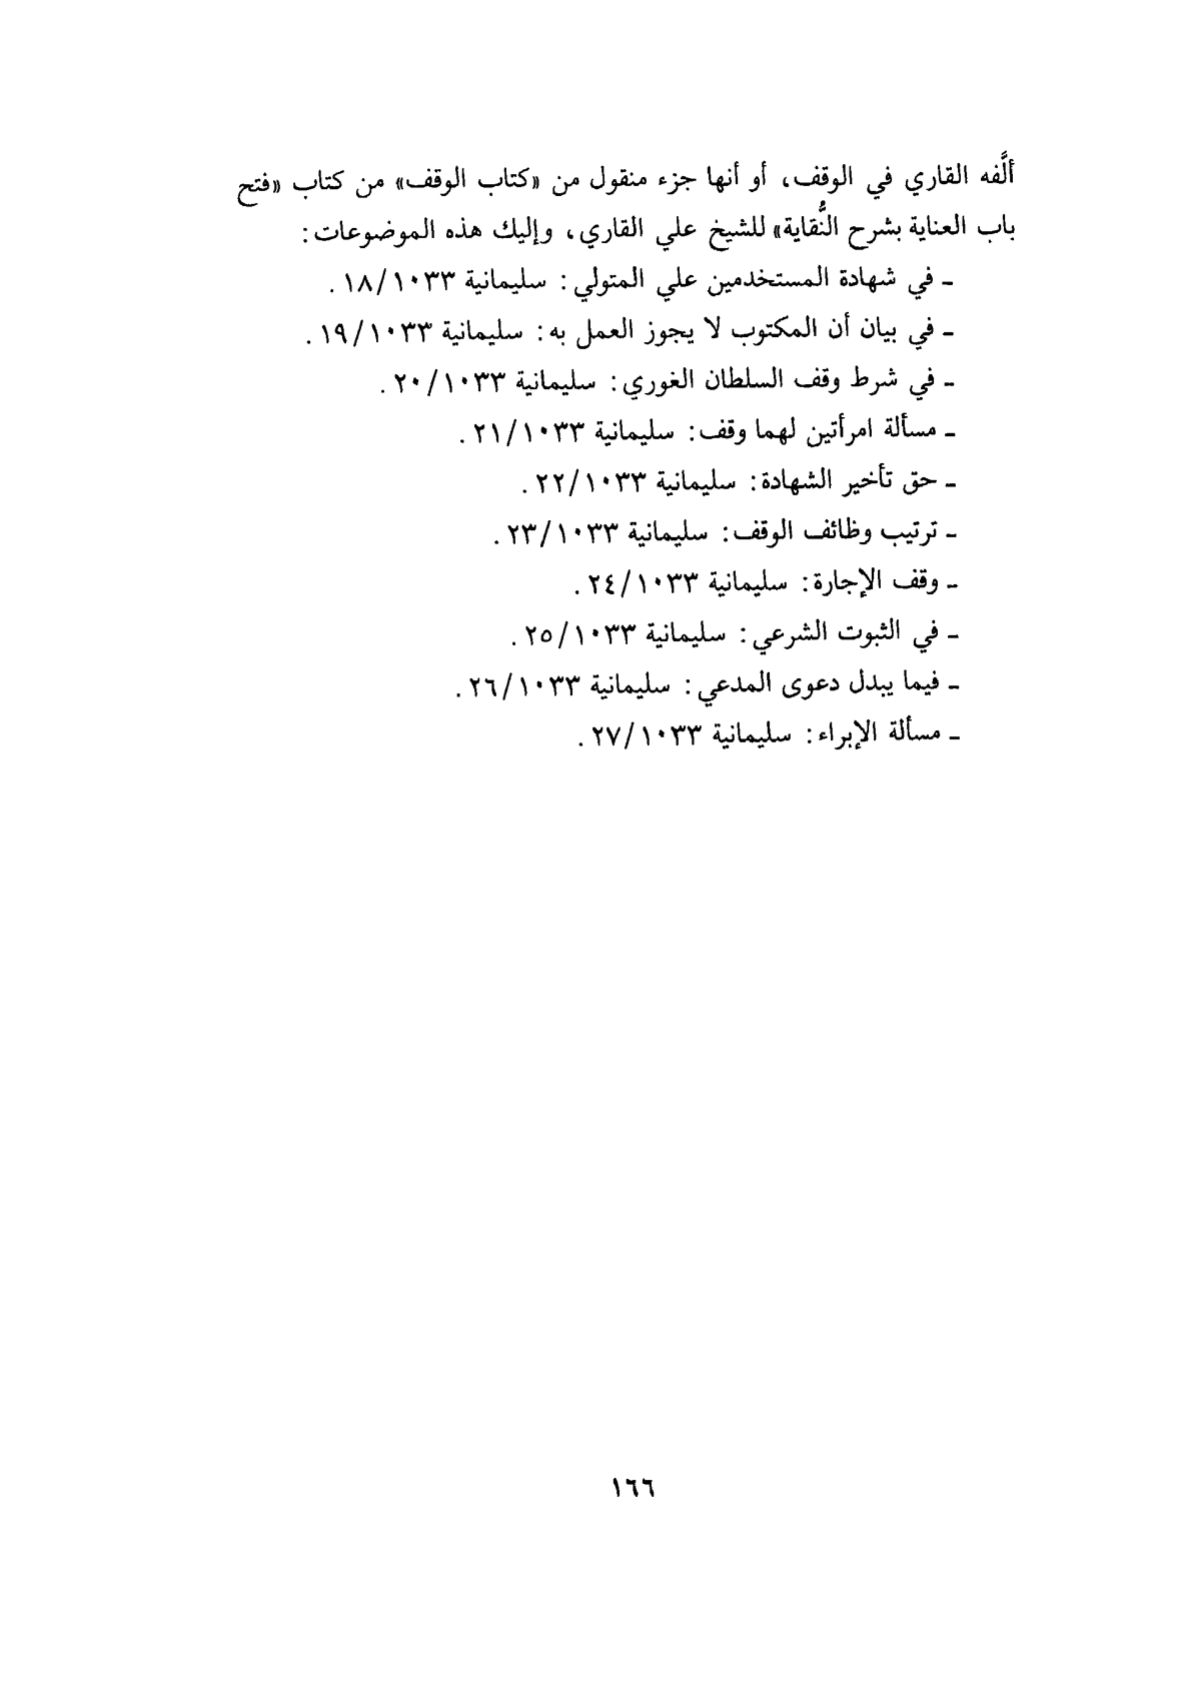 ألَّفه القاري في الوقف، أو أنها جزء منقول من «كتاب الوقف» من كتاب «فتح
باب العناية بشرح النُّقاية» للشيخ علي القاري، وإليك هذه الموضوعات:
ـ في شهادة المستخدمين علي المتولي: سليمانية ١٨/١٠٣٣.
ـ في بيان أن المكتوب لا يجوز العمل به: سليمانية ١٩/١٠٣٣.
ـ في شرط وقف السلطان الغوري: سليمانية ٢٠/١٠٣٣.
ـ مسألة امرأتين لهما وقف: سليمانية ٢١/١٠٣٣.
ـ حق تأخير الشهادة: سليمانية ٢٢/١٠٣٣.
ـ ترتيب وظائف الوقف: سليمانية ٢٣/١٠٣٣.
ـ وقف الإجارة: سليمانية ٢٤/١٠٣٣.
ـ في الثبوت الشرعي: سليمانية ٢٥/١٠٣٣.
ـ فيما يبدل دعوى المدعي: سليمانية ٢٦/١٠٣٣.
ـ مسألة الإبراء: سليمانية ٢٧/١٠٣٣.
١٦٦